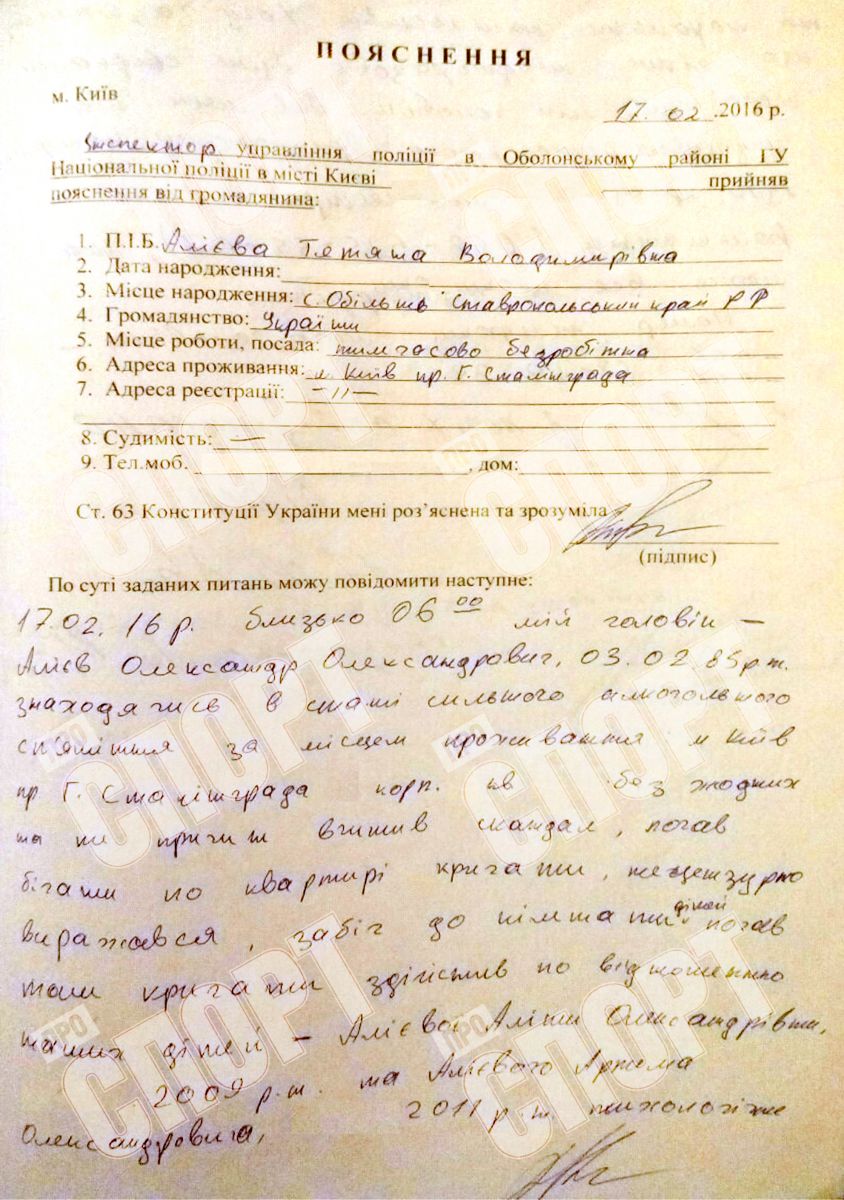 ПОЯСНЕННЯ
м. Київ
17. 02 .2016 р.
Інспектор управління поліції в Оболонському районі ГУ
Національної поліції в місті Києві прийняв
пояснення від громадянина:
1. П.І.Б. Алієва Тетяна Володимирівна
2. Дата народження:
3. Місце народження: с. Обільне Ставропольський край РФ
4. Громадянство: України
5. Місце роботи, посада: тимчасово безробітна
6. Адреса проживання: м. Київ пр. Г. Сталінграда
7. Адреса реєстрації: –"–
8. Судимість: —
9. Тел.моб. , дом:
Ст. 63 Конституції України мені роз’яснена та зрозуміла
(підпис)
По суті заданих питань можу повідомити наступне:
17.02.16 р. близько 06 00 мій чоловік –
Алієв Олександр Олександрович, 03.02.85р.н.
знаходячись в стані сильного алкогольного
сп'яніння за місцем проживання м Київ
пр. Г. Сталінграда корп. кв без жодних
на те причин вчинив скандал, почав
бігати по квартирі кричати, нецензурно
виражався, забіг до кімнати дітей почав
там кричати здійснив по відношенню
наших дітей – Алієвої Аліни Олександрівни,
2009 р.н. та Алієвого Артема
Олександровича, 2011 р.н. психологічне
ПРО СПОРТ